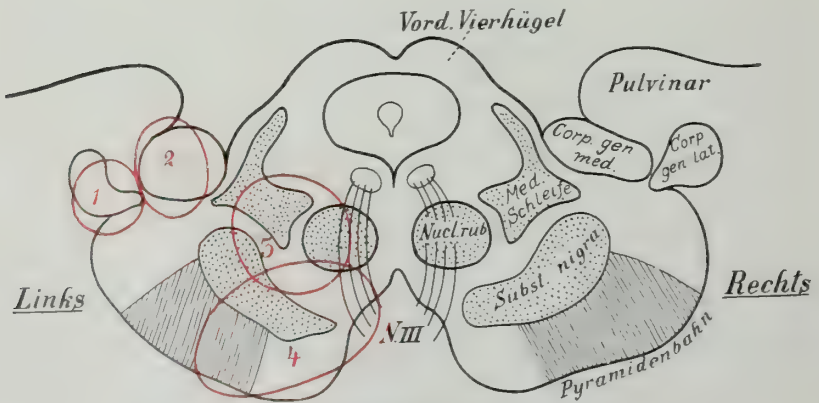 Vord. Vierhügel
Pulvinar
Corp. gen
med.
Corp
gen lat.
1
2
Med.
Schleife
Nucl. rub
3
Subst. nigra
Links
Rechts
4
N.III
Pyramidenbahn